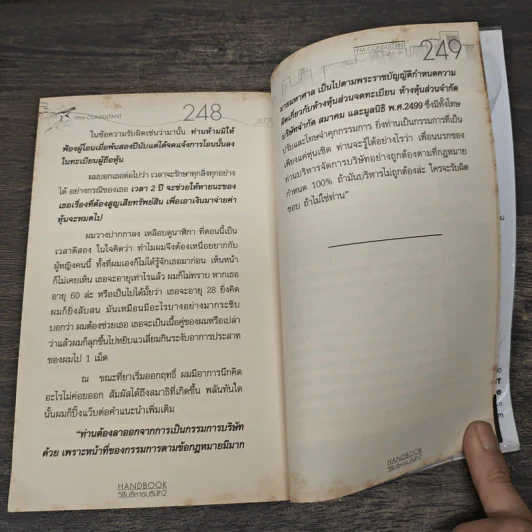 PPM CONSULTANT
248
ในข้อความรับผิดเช่นว่ามานั้น ท่านห้ามมิให้
ฟ้องผู้โอนเมื่อพ้นสองปีนับแต่ได้จดแจ้งการโอนนั้นลง
ในทะเบียนผู้ถือหุ้น
ผมบอกเธอต่อไปว่า เวลาจะรักษาทุกสิ่งทุกอย่าง
ได้ อย่างกรณีของเธอ เวลา 2 ปี จะช่วยให้ทายนะของ
เธอเรื่องที่ต้องสูญเสียทรัพย์สิน เพื่อเอาเงินมาจ่ายค่า
หุ้นจะหมดไป
ผมวางปากกาลง เหลือบดูนาฬิกา ที่ตอนนี้เป็น
เวลาตีสอง ในใจคิดว่า ทำไมผมจึงต้องเหนื่อยยากกับ
ผู้หญิงคนนี้ ทั้งที่ผมเองก็ไม่ได้รู้จักเธอมาก่อน เห็นหน้า
ก็ไม่เคยเห็น เธอจะอายุเท่าไรแล้ว ผมก็ไม่ทราบ หากเธอ
อายุ 60 ล่ะ หรือเป็นไปได้มั้ยว่า เธอจะอายุ 28 ยิ่งคิด
ผมก็ยิ่งสับสน มันเหมือนมีอะไรบางอย่างมากระซิบ
บอกว่า ผมต้องช่วยเธอ เธอจะเป็นเนื้อคู่ของผมหรือเปล่า
ว่าแล้วผมก็ลุกขึ้นไปหยิบแวเลี่ยมกินระงับอาการประสาท
ของผมไป 1 เม็ด
ณ ขณะที่ยาเริ่มออกฤทธิ์ ผมมีอาการนึกคิด
อะไรไม่ค่อยออก สัมผัสได้ถึงสมาธิที่เกิดขึ้น พลันทันใด
นั้นผมก็ปิ๊งแว๊บต่อคำแนะนำเพิ่มเติม
“ท่านต้องลาออกจากการเป็นกรรมการบริษัท
ด้วย เพราะหน้าที่ของกรรมการตามข้อกฎหมายมีมาก
HANDBOOK
วิธีบริหารบริษัท2
PPM CONSULTANT
249
มายมหาศาล เป็นไปตามพระราชบัญญัติกำหนดความ
ผิดเกี่ยวกับห้างหุ้นส่วนจดทะเบียน ห้างหุ้นส่วนจำกัด
บริษัทจำกัด สมาคม และมูลนิธิ พ.ศ.2499 ซึ่งมีทั้งโทษ
ปรับและโทษจำคุกกรรมการ ยิ่งท่านเป็นกรรมการที่เป็น
เพียงแค่หุ่นเชิด ท่านจะรู้ได้อย่างไรว่า เพื่อนนรกของ
ท่านบริหารจัดการบริษัทอย่างถูกต้องตามที่กฎหมาย
กำหนด 100% ถ้ามันบริหารไม่ถูกต้องล่ะ ใครจะรับผิด
ชอบ ถ้าไม่ใช่ท่าน”
HANDBOOK
วิธีบริหารบริษัท2